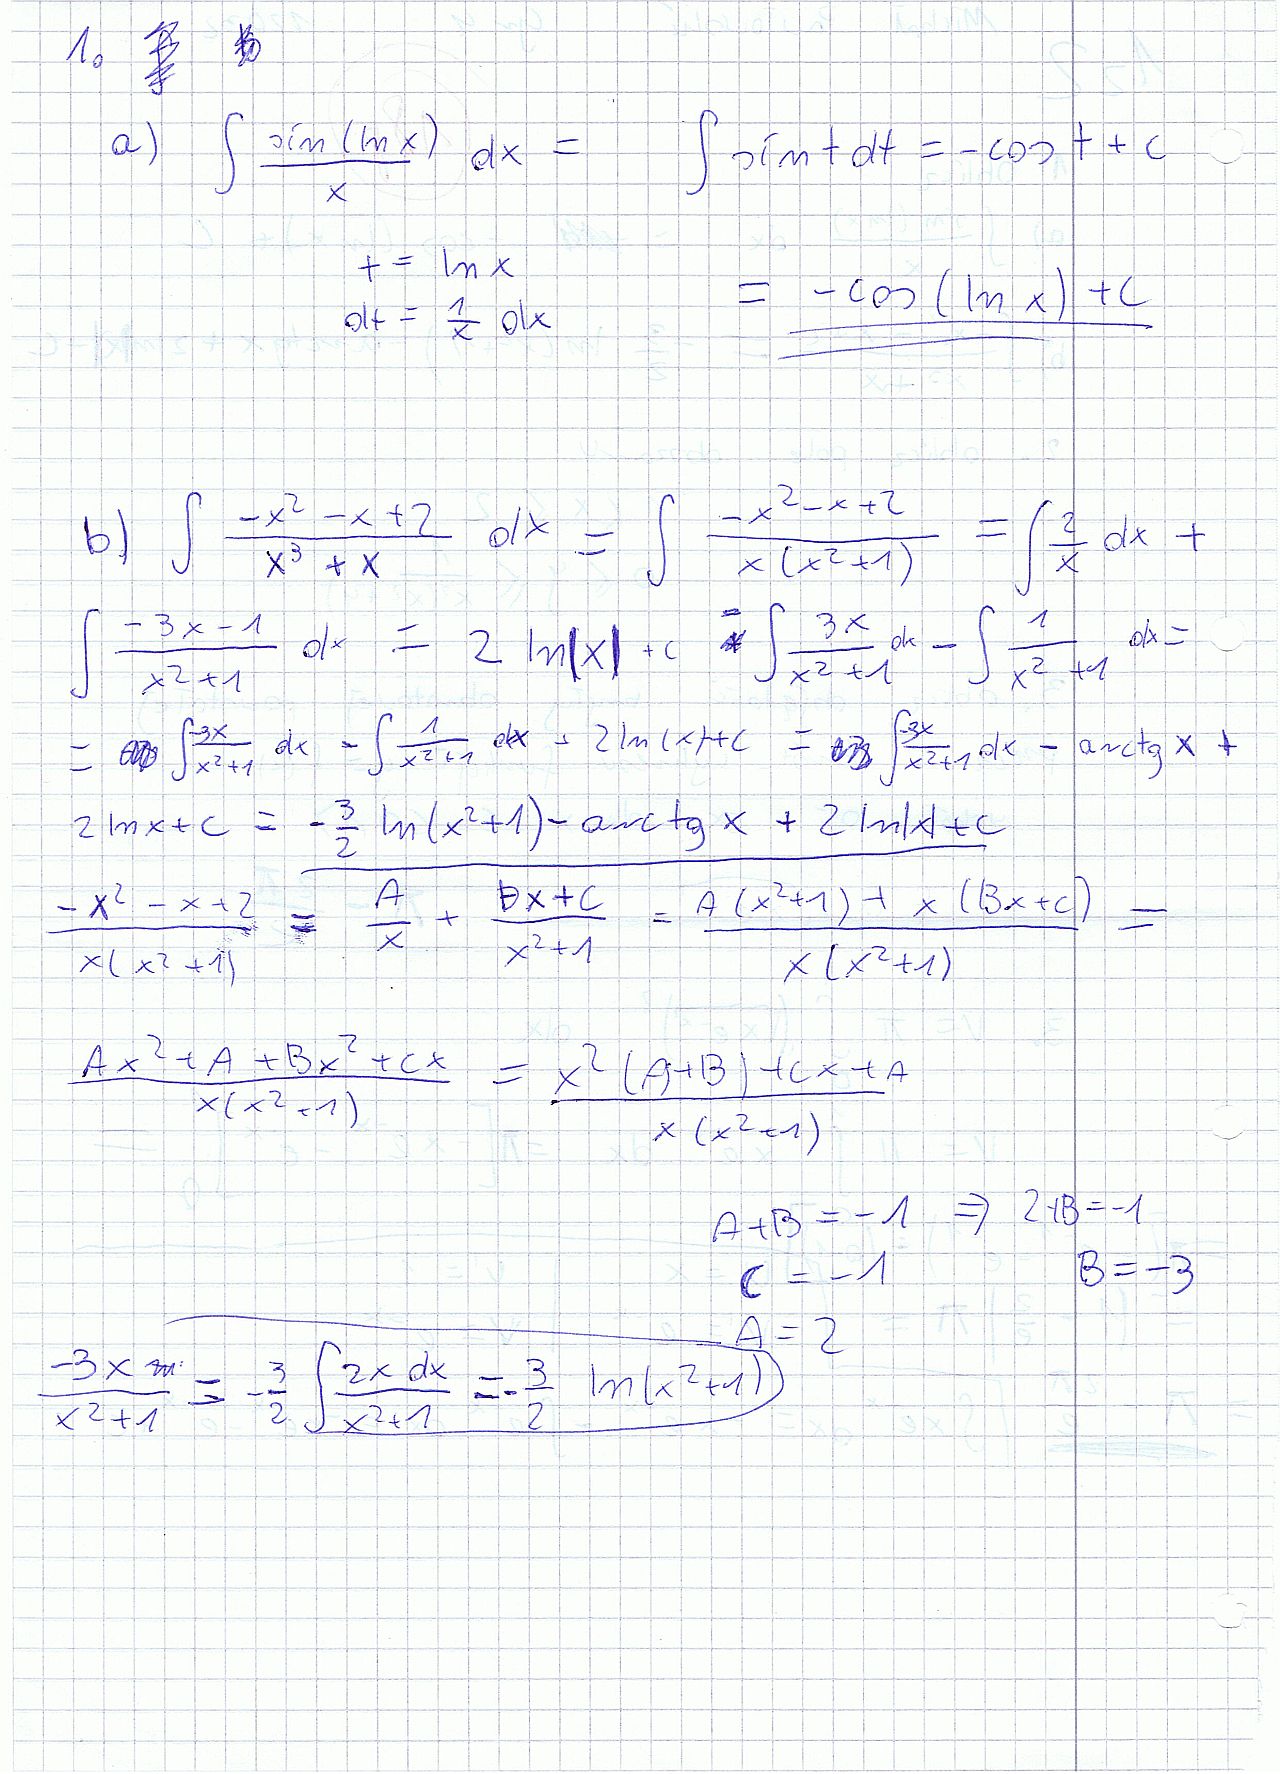 1.
a) ∫ sin(ln x)/x dx = ∫ sin t dt = -cos t + c
t = ln x
dt = 1/x dx
= -cos(ln x) + c
b) ∫ (-x² - x + 2)/(x³ + x) dx = ∫ (-x² - x + 2)/(x(x² + 1)) = ∫ 2/x dx +
∫ (-3x - 1)/(x² + 1) dx = 2 ln|x| + c = ∫ 3x/(x² + 1) dx - ∫ 1/(x² + 1) dx =
= ∫ -3x/(x² + 1) dx - ∫ 1/(x² + 1) dx + 2 ln(x) + c = ∫ -3x/(x² + 1) dx - arctg x +
2 ln x + c = -3/2 ln(x² + 1) - arctg x + 2 ln|x| + c
(-x² - x + 2)/(x(x² + 1)) = A/x + (Bx + C)/(x² + 1) = (A(x² + 1) + x(Bx + C))/(x(x² + 1)) =
(Ax² + A + Bx² + Cx)/(x(x² + 1)) = (x²(A + B) + Cx + A)/(x(x² + 1))
A + B = -1 ⇒ 2 + B = -1
C = -1 B = -3
A = 2
-3x/(x² + 1) = -3/2 ∫ 2x dx/(x² + 1) = -3/2 ln(x² + 1)